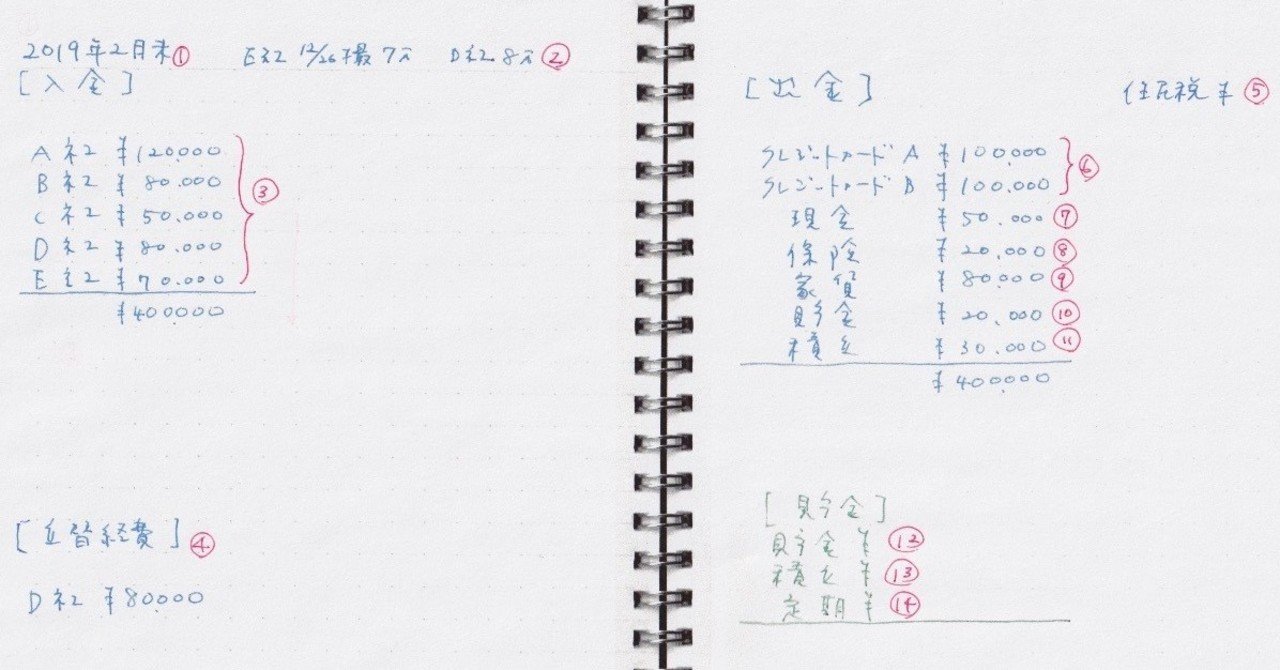 2019年2月末① E社 12/26撮 7万 D社 8万②
[入金]
A社 ¥120.000
B社 ¥80.000
C社 ¥50.000
D社 ¥80.000
E社 ¥70.000
③
¥400000
[立替経費]④
D社 ¥80000
[出金] 住民税 ¥⑤
クレジットカード A ¥100.000
クレジットカード B ¥100.000
⑥
現金 ¥50.000⑦
保険 ¥20.000⑧
家賃 ¥80.000⑨
貯金 ¥20.000⑩
積立 ¥30.000⑪
¥400000
[貯金]
貯金 ¥⑫
積立 ¥⑬
定期 ¥⑭